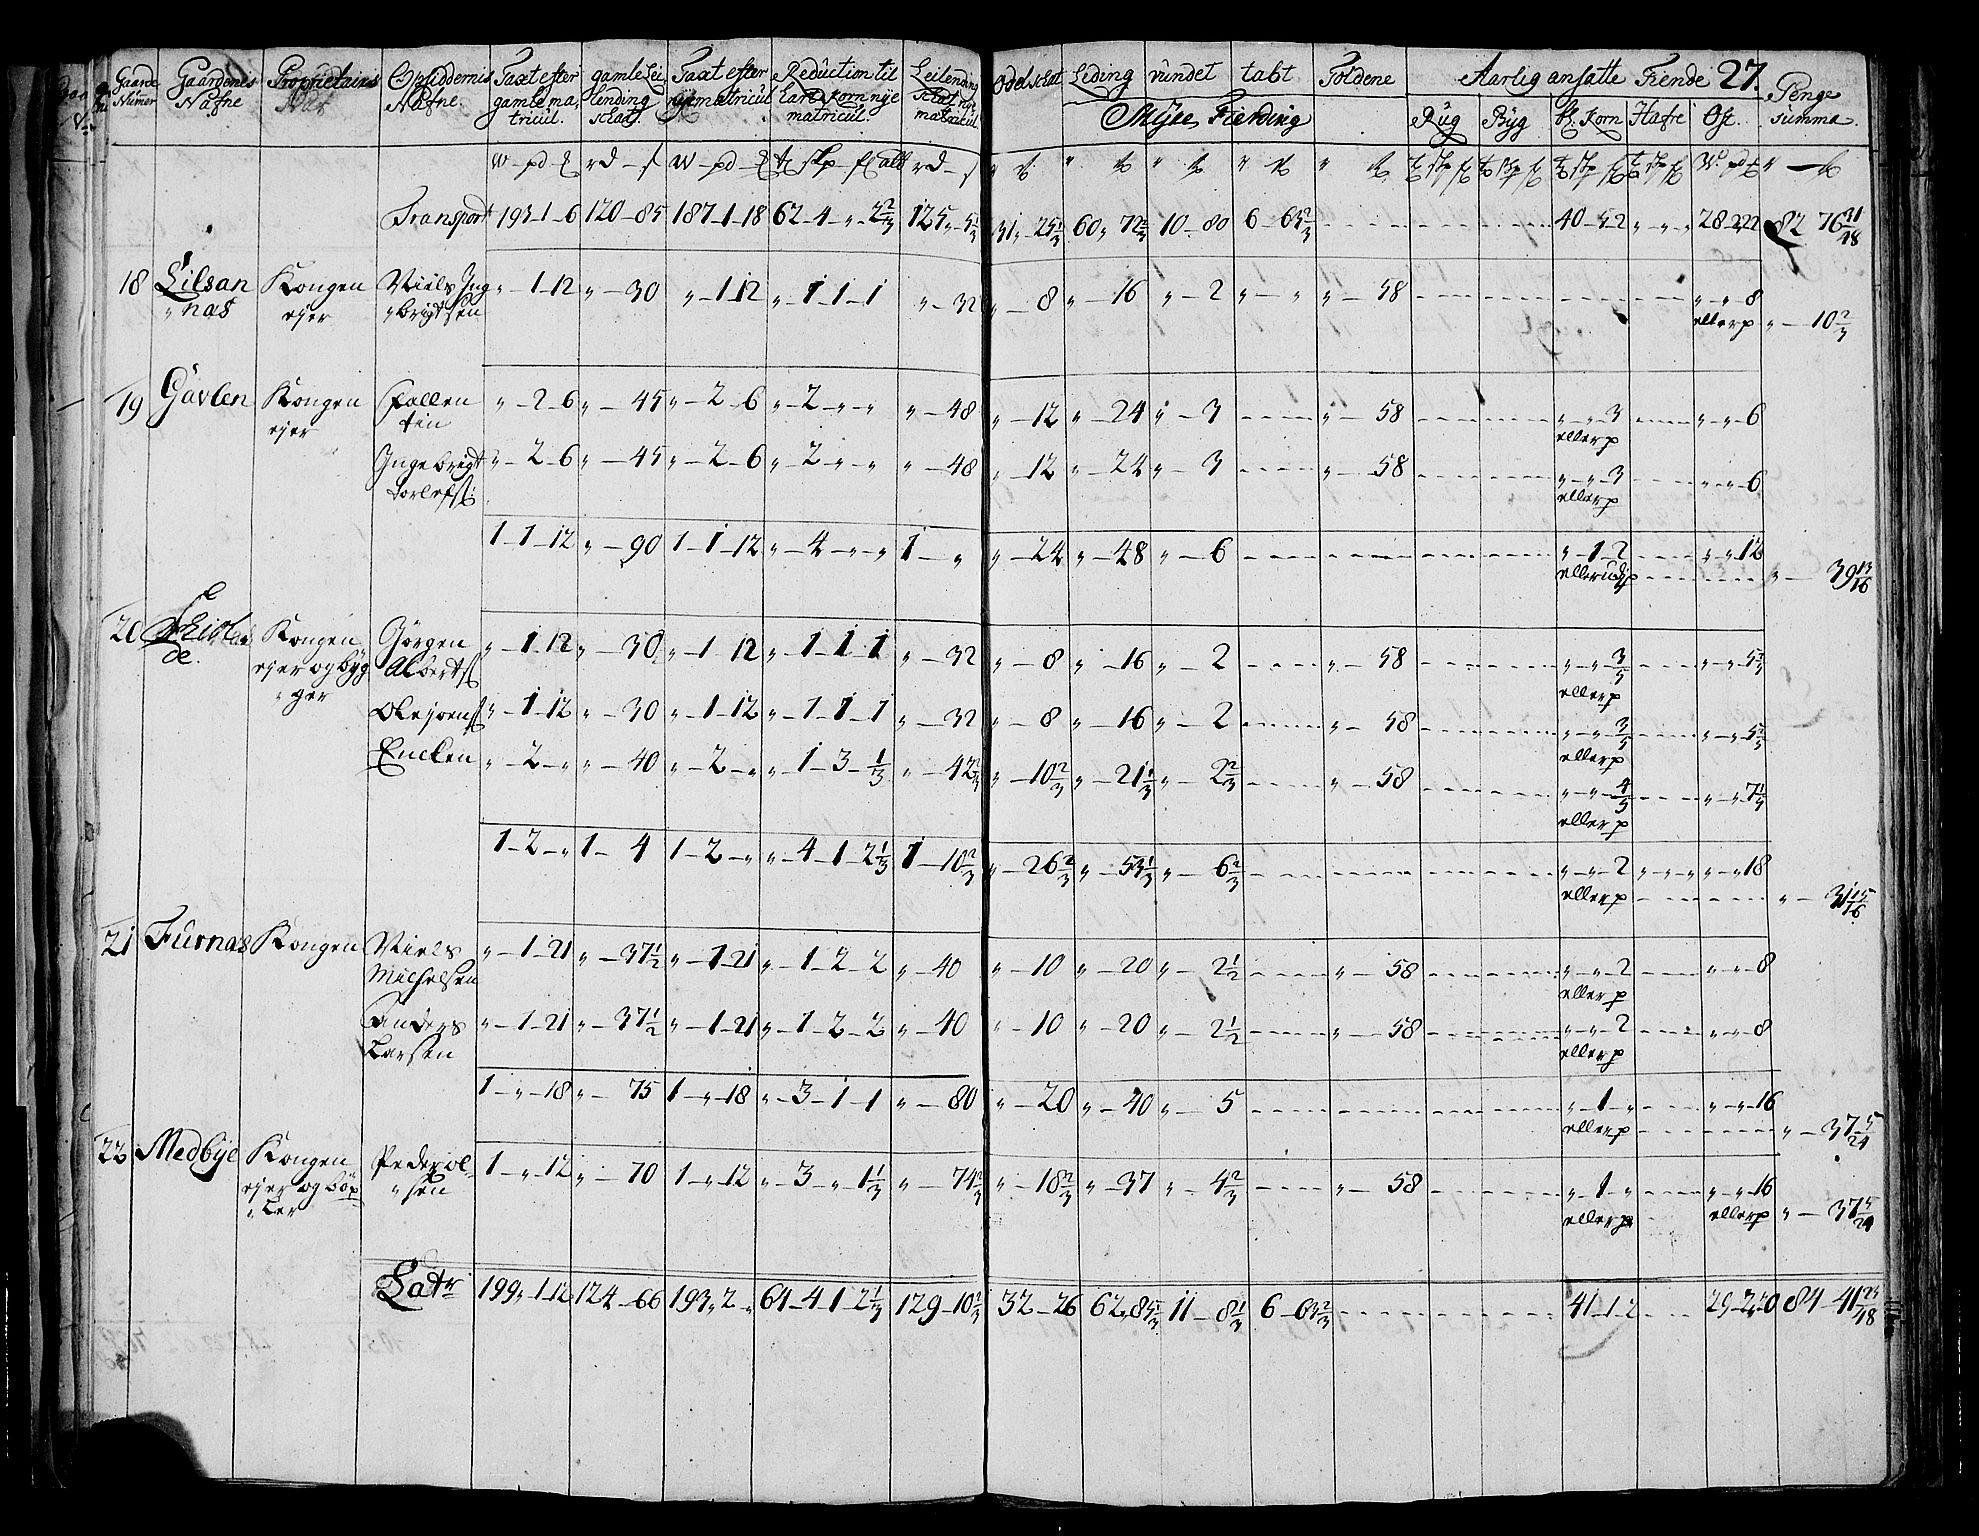 Gaarde Gaardenes Proprietairns Opsiddernis Taxt efter gamle Lei Taxt efter Reduction til Leilending
Numer Nafne Nafne gamle ma lending nye matricul hart Korn nye Schat nye
tricul. schat. matricul matricul
Odel schat Leding vundet tabt Toldene Aarlig ansatte Tiende 27. Penge
Myses Fierding Rug Byg bl. Korn Hafre Ost. Summa
Transport 193-1-6 120-85 187-1-18 62-4-„-2 2/3 125„-5 1/3 31„-25 1/3 60„72 2/3 10-80 6-63 2/3 40-5-2 „-„-„ 28-2-22 82 76 31/48
18 Lilsan Kongen Niels Ing „-1-12 „-30 „-1-12 „-1-1-1 „-32 „-8 „-16 „-2 „-„ „-58 „-„-8
„nas ejer „brigtsen eller p „-10 2/3
19 Gavlen Kongen Follen „-2-6 „-45 „-2-6 „-2-„-„ „-48 „-12 „-24 „-3 „-58 „-„-3 „-„-6
ejer tin eller p
Ingebrigt „-2-6 „-45 „-2-6 „-2-„-„ „-48 „-12 „-24 „-3 „-58 „-„-3 „-„-6
Torlefs: eller p
1-1-12 „-90 1-1-12 „-4-„-„ 1-„ „-24 „-48 „-6 „-1-2 „-„-12
„-39 13/16
20 Kongen Gørgen „-1-12 „-30 „-1-12 „-1-1-1 „-32 „-8 „-16 „-2 „-58 „-„-3/5 „-„-5 2/5
de. ejer og byg Alberts eller p
„ger Ole joens „-1-12 „-30 „-1-12 „-1-1-1 „-32 „-8 „-16 „-2 „-58 „-„-3/5 „-„-5 2/5
eller p
Encken „-2-„ „-40 „-2-„ „-1-3-1/3 „-42 2/3 „-10 2/3 „-21 1/3 „-2 2/3 „-58 „-„-4/5 „-„-7 1/5
eller p
1-2-„ 1-4 1-2-„ „-4-1-2 1/3 1-10 2/3 „-26 2/3 „-53 1/3 „-6 2/3 „-„-2 „-„-„ „-„-18
eller p „-31 15/16
21 Furnas Kongen Niels „-1-21 „-37 1/2 „-1-21 „-1-2-2 „-40 „-10 „-20 „-2 1/2 „-58 „-„-2 „-„-8
Michelsen eller p
Anders „-1-21 „-37 1/2 „-1-21 „-1-2-2 „-40 „-10 „-20 „-2 1/2 „-58 „-„-2 „-„-8
Larsen eller p
1-„-18 „-75 1-„-18 „-3-1-1 „-80 „-20 „-40 „-5 „-1-„ „-„-16
eller p „-37 5/24
22 Medbye Kongen Peder ol- 1-„-12 „-70 1-„-12 „-3-„-1 1/3 „-74 2/3 „-18 2/3 „-37 „-4 2/3 „-58 „-1-„ „-„-16
ejer og „sen eller p eller p „-37 5/24
Latr 199„-1-12 124-66 193„2-„ 64-4-1-2 1/3 129-10 2/3 32-26 62„85 1/3 11-8 1/3 6-63 2/3 41-1-2 29-2-20 84-41 23/48